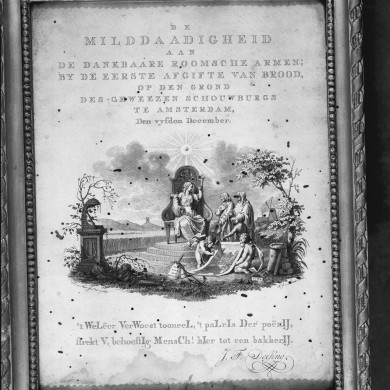 DE
MILDDAADIGHEID
AAN
DE DANKBAARE ROOMSCHE ARMEN;
BY DE EERSTE AFGIFTE VAN BROOD,
OP DEN GROND
DES GEWEEZEN SCHOUWBURGS
TE AMSTERDAM,
Den vyfden December.
't WeLéer VerWoest tooneeL, 't paLeIs Der poëzIJ,
strekt V, behoeftIg MensCh! hIer tot een bakkerIJ.